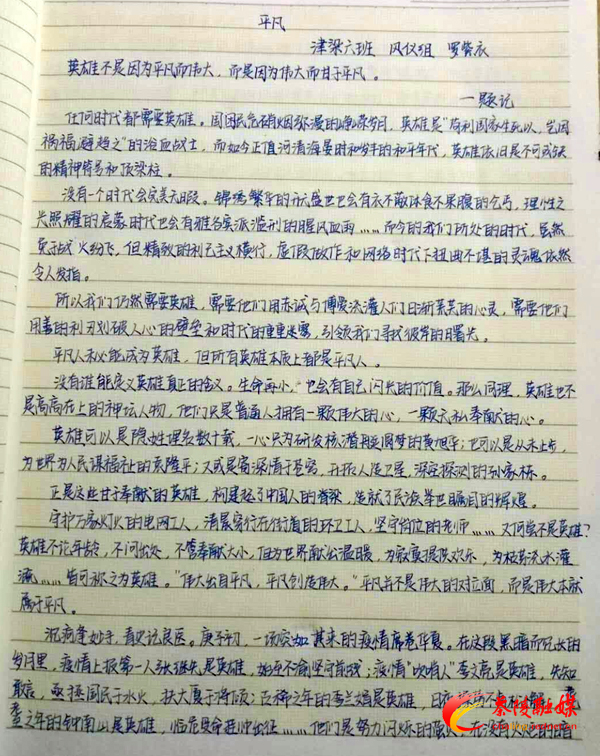 平凡
津梁六班 风仪组 罗紫衣
英雄不是因为平凡而伟大，而是因为伟大而甘于平凡。
—题记
任何时代都需要英雄。国困民危硝烟弥漫的峥嵘岁月，英雄是“苟利国家生死以，岂因
祸福避趋之”的浴血战士，而如今正值河清海晏时和岁丰的和平年代，英雄依旧是不可或缺
的精神符号和顶梁柱。
没有一个时代会完美无瑕。锦绣繁华的 盛世也会有衣不蔽体食不果腹的乞丐，理性之
光照耀的启蒙时代也会有 滥刑的腥风血雨……而今的我们所处的时代，虽然
免于战火纷飞，但精致的利己主义横行，虚假做作和网络时代下扭曲不堪的灵魂依然
令人发指。
所以我们仍然需要英雄，需要他们用赤诚与博爱浇灌人们日渐荒芜的心灵，需要他们
用善的利刃划破人心的壁垒和时代的重重迷雾，引领我们寻找彼岸的曙光。
平凡人未必能成为英雄，但所有英雄本质上都是平凡人。
没有谁能定义英雄真正的含义。生命再小，也会有自己闪光的价值。那么同理，英雄也不
是高高在上的神坛人物，他们只是普通人拥有一颗伟大的心，一颗无私奉献的心。
英雄可以是隐姓埋名数十载，一心只为研发核潜艇圆梦的黄旭华；也可以是从未止步，
为世界为人民谋福祉的袁隆平；又或是寄深情于苍穹，开拓人造卫星，深空探测的孙家栋。
正是这些甘于奉献的英雄，构建起了中国人的脊梁，造就了民族举世瞩目的辉煌。
守护万家灯火的电网工人，清晨穿行在街道的环卫工人，坚守岗位的老师……又何尝不是英雄？
英雄不论年龄，不问出处，不管奉献大小，但为世界献出温暖，为寂寞提供欢乐，为枯萎浇水灌
溉……皆可称之为英雄。“伟大出自平凡，平凡创造伟大。”平凡并不是伟大的对立面，而是伟大本就
属于平凡。
沉疴逢妙手，青史记良医。庚子初，一场突如其来的疫情席卷华夏。在这段黑暗而冗长的
岁月里，疫情上报第一人张继先是英雄，始至不渝坚守前线；疫情“吹哨人”李文亮是英雄，先知
敢言，拯救国民于水火，扶大厦于将倾；古稀之年的李兰娟是英雄，日夜
耋之年的钟南山是英雄，临危受命逆行出征……他们是努力闪烁的
秦陵融媒